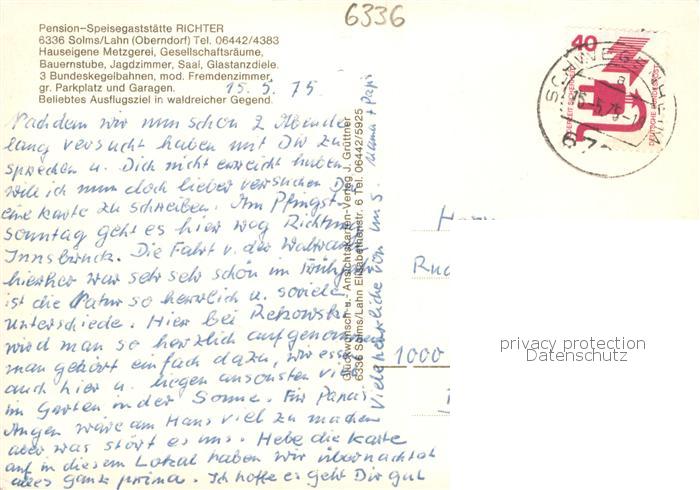 6336
Pension-Speisegaststätte RICHTER
6336 Solms/Lahn (Oberndorf) Tel. 06442/4383
Hauseigene Metzgerei, Gesellschaftsräume,
Bauernstube, Jagdzimmer, Saal, Glastanzdiele.
3 Bundeskegelbahnen, mod. Fremdenzimmer,
gr. Parkplatz und Garagen.
Beliebtes Ausflugsziel in waldreicher Gegend.
15.5.75
Nachdem wir nun schon 2 Abende
lang versucht haben mit Dir zu
sprechen u. Dich nicht erreicht haben
will ich nun doch lieber versuchen Dir
eine Karte zu schreiben. Am Pfingst-
sonntag geht es hier weg Richtung
Innsbruck. Die Fahrt v. der
hierher war sehr sehr schön im Frühjahr
ist die Natur so herrlich u. soviele
Unterschiede. Hier bei
wird man so herzlich aufgenommen
man gehört einfach dazu, wir essen
auch hier u. liegen ansonsten viel
im Garten in der Sonne. Für Papas
Augen wäre am Haus viel zu machen
aber was stört es uns. Hebe die Karte
auf in diesem Lokal haben wir übernachtet
alles ganz prima. Ich hoffe es geht Dir gut
Viele herzliche von uns. Mama + Papi
Glückwunsch- u. Ansichtskarten-Verlag J. Grüttner
6336 Solms/Lahn Elisabethenstr. 6 Tel. 06442/5925
40
DEUTSCHE BUNDESPOST
15.-5.75
Herrn
1000
privacy protection
Datenschutz